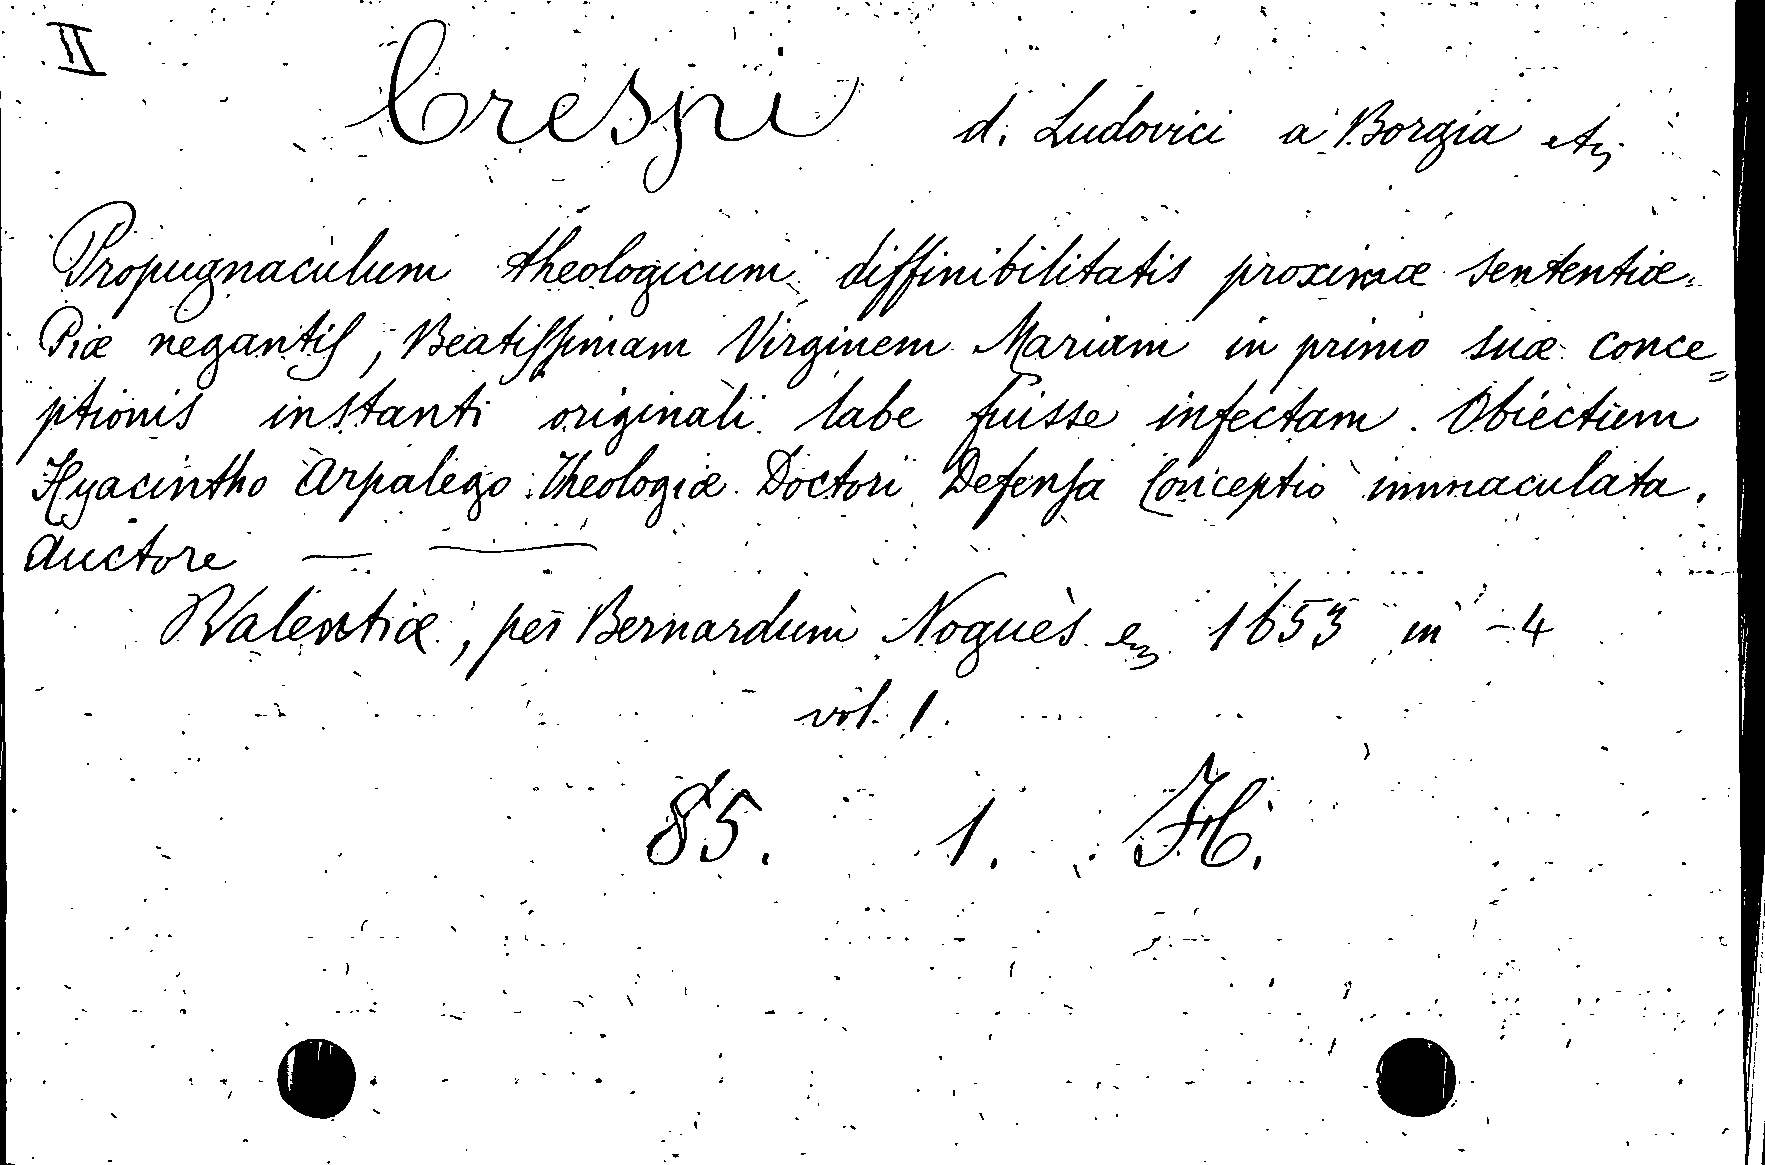 II
Crespi d. Ludovici a Borgia etc
Propugnaculum theologicum diffinibilitatis proximæ sententiæ
Piæ negantis, Beatissimam Virginem Mariam in primo suæ conce=
ptionis instanti originali labe fuisse infectam. Obiectum
Hyacintho Arpalego Theologiæ Doctori Defensa Conceptio immaculata.
Auctore — —
Valentiæ, per Bernardum Noguès 1653 in -4
vol. 1.
85. 1. H.